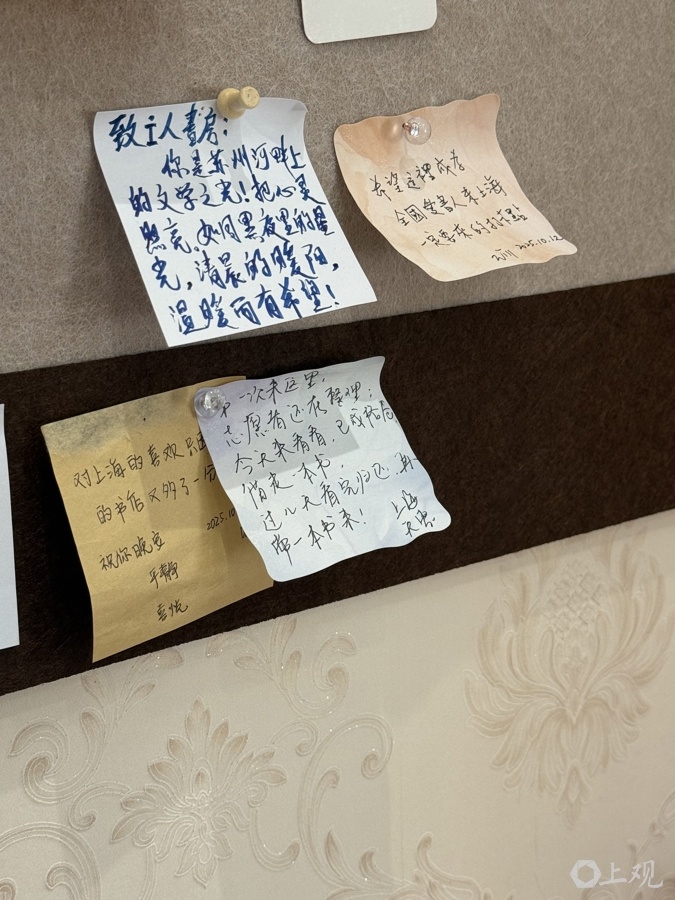 致i人書房：
你是苏州河畔上
的文学之光！把心灵
照亮，如同黑夜里的星
光，清晨的暖阳，
温暖而有希望！
希望这裡成为
全国爱書人来上海
一定要来的打卡点
2025.10.12
对上海的喜欢只因
的书店又多了一分
2025.10
祝你晚安
平静
喜悦
一次来这里，
志愿者还在整理；
今天来看看，已成格局，
借走一本书，
过几天看完归还，再
带一本书来！
上海
上观